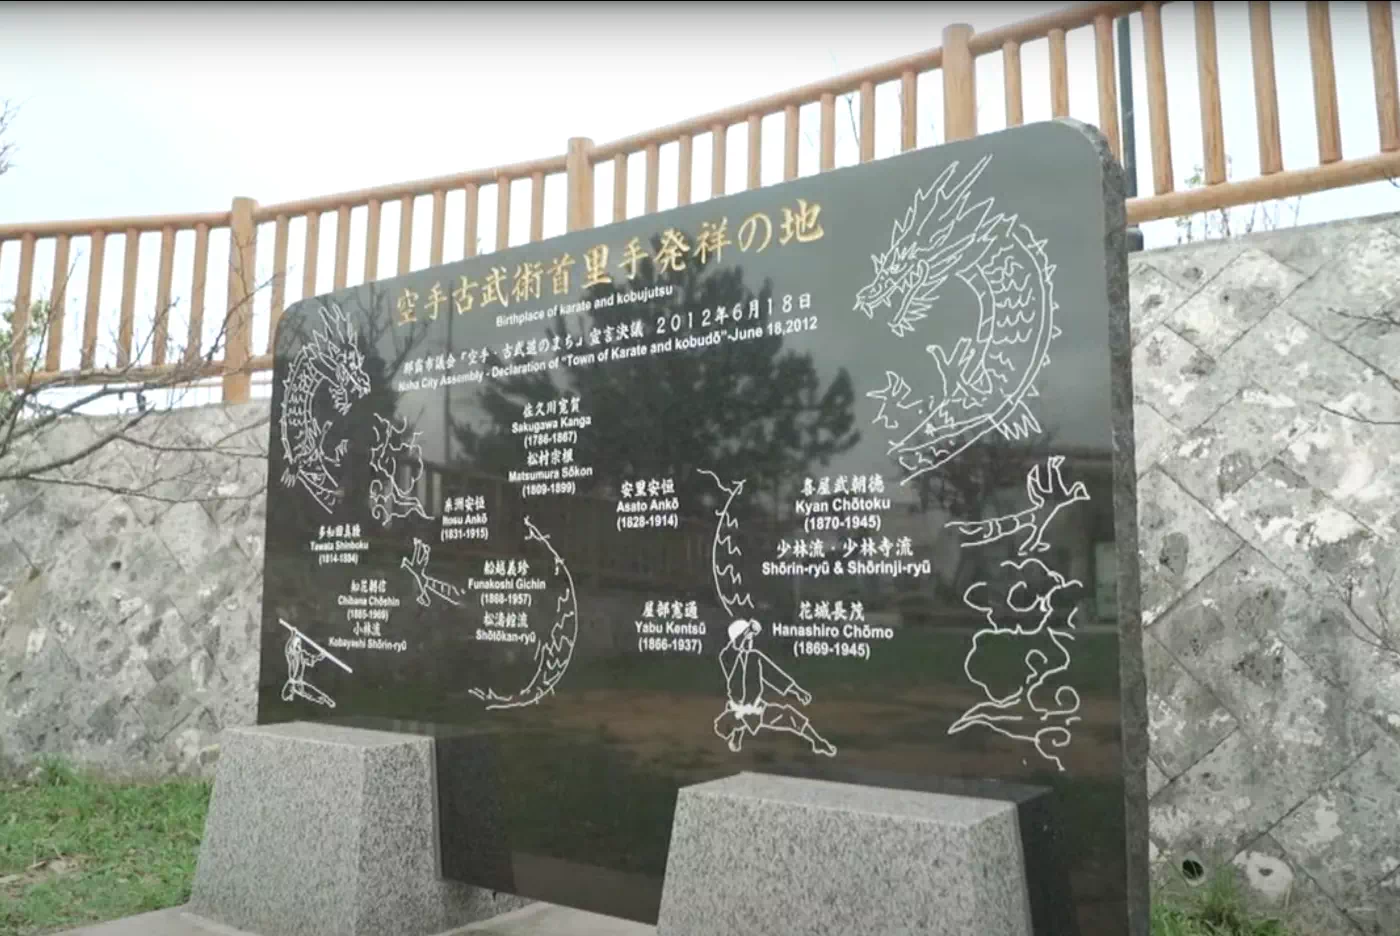 空手古武術首里手発祥の地
Birthplace of karate and kobujutsu
那覇市議会「空手・古武道のまち」宣言決議 2012年6月18日
Naha City Assembly - Declaration of "Town of Karate and kobudō"-June 18,2012
佐久川寛賀
Sakugawa Kanga
(1786-1867)
松村宗棍
Matsumura Sōkon
(1809-1899)
糸洲安恒
Itosu Ankō
(1831-1915)
安里安恒
Asato Ankō
(1828-1914)
喜屋武朝徳
Kyan Chōtoku
(1870-1945)
少林流・少林寺流
Shōrin-ryū & Shōrinji-ryū
多和田真睦
Tawata Shinboku
(1814-1884)
知花朝信
Chibana Chōshin
(1885-1969)
小林流
Kobayashi Shōrin-ryū
船越義珍
Funakoshi Gichin
(1868-1957)
松濤館流
Shōtōkan-ryū
屋部憲通
Yabu Kentsū
(1866-1937)
花城長茂
Hanashiro Chōmo
(1869-1945)